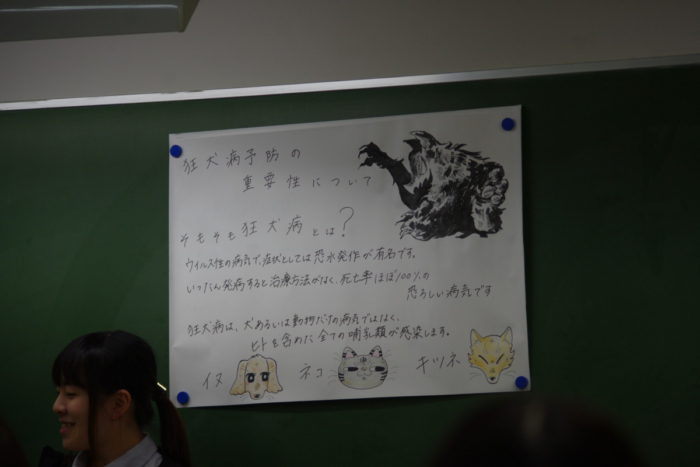 狂犬病予防の
重要性について
そもそも狂犬病とは?
ウイルス性の病気で、症状としては恐水発作が有名です。
いったん発病すると治療方法がなく、死亡率ほぼ100%の
恐ろしい病気です
狂犬病は、犬あるいは動物だけの病気ではなく、
ヒトを含めた全ての哺乳類が感染します。
イヌ ネコ キツネ